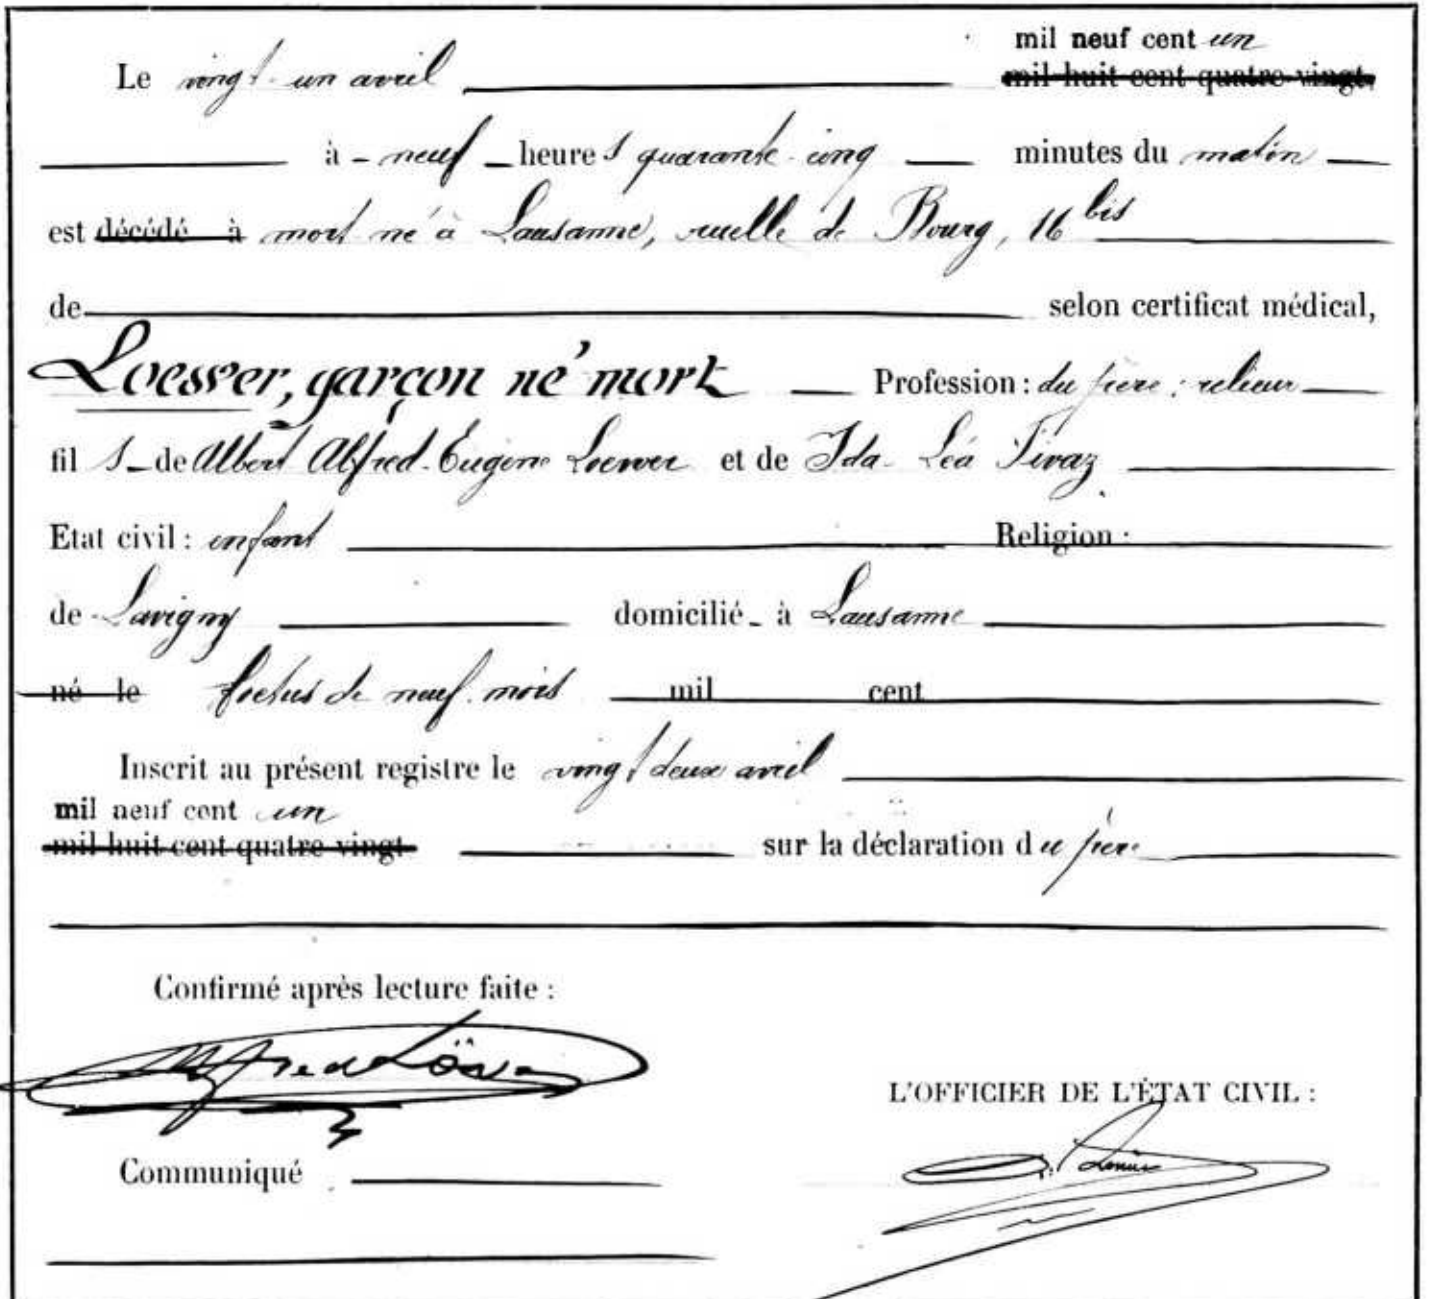 mil neuf cent un
Le vingt-un avril mil huit cent quatre-vingt
à neuf heures quarante-cinq minutes du matin
est décédé à mort-né à Lausanne, ruelle de Bourg, 16 bis
de selon certificat médical,
Loewer, garçon né mort Profession : du père : relieur
fils de Albert Alfred-Eugène Loewer et de Ida-Léa Tivaz
Etat civil : enfant Religion :
de Lavigny domicilié à Lausanne
né le foetus de neuf mois mil cent
Inscrit au présent registre le vingt-deux avril
mil neuf cent un
mil huit cent quatre-vingt sur la déclaration du père
Confirmé après lecture faite :
Alfred Löwer
L'OFFICIER DE L'ÉTAT CIVIL :
Communiqué